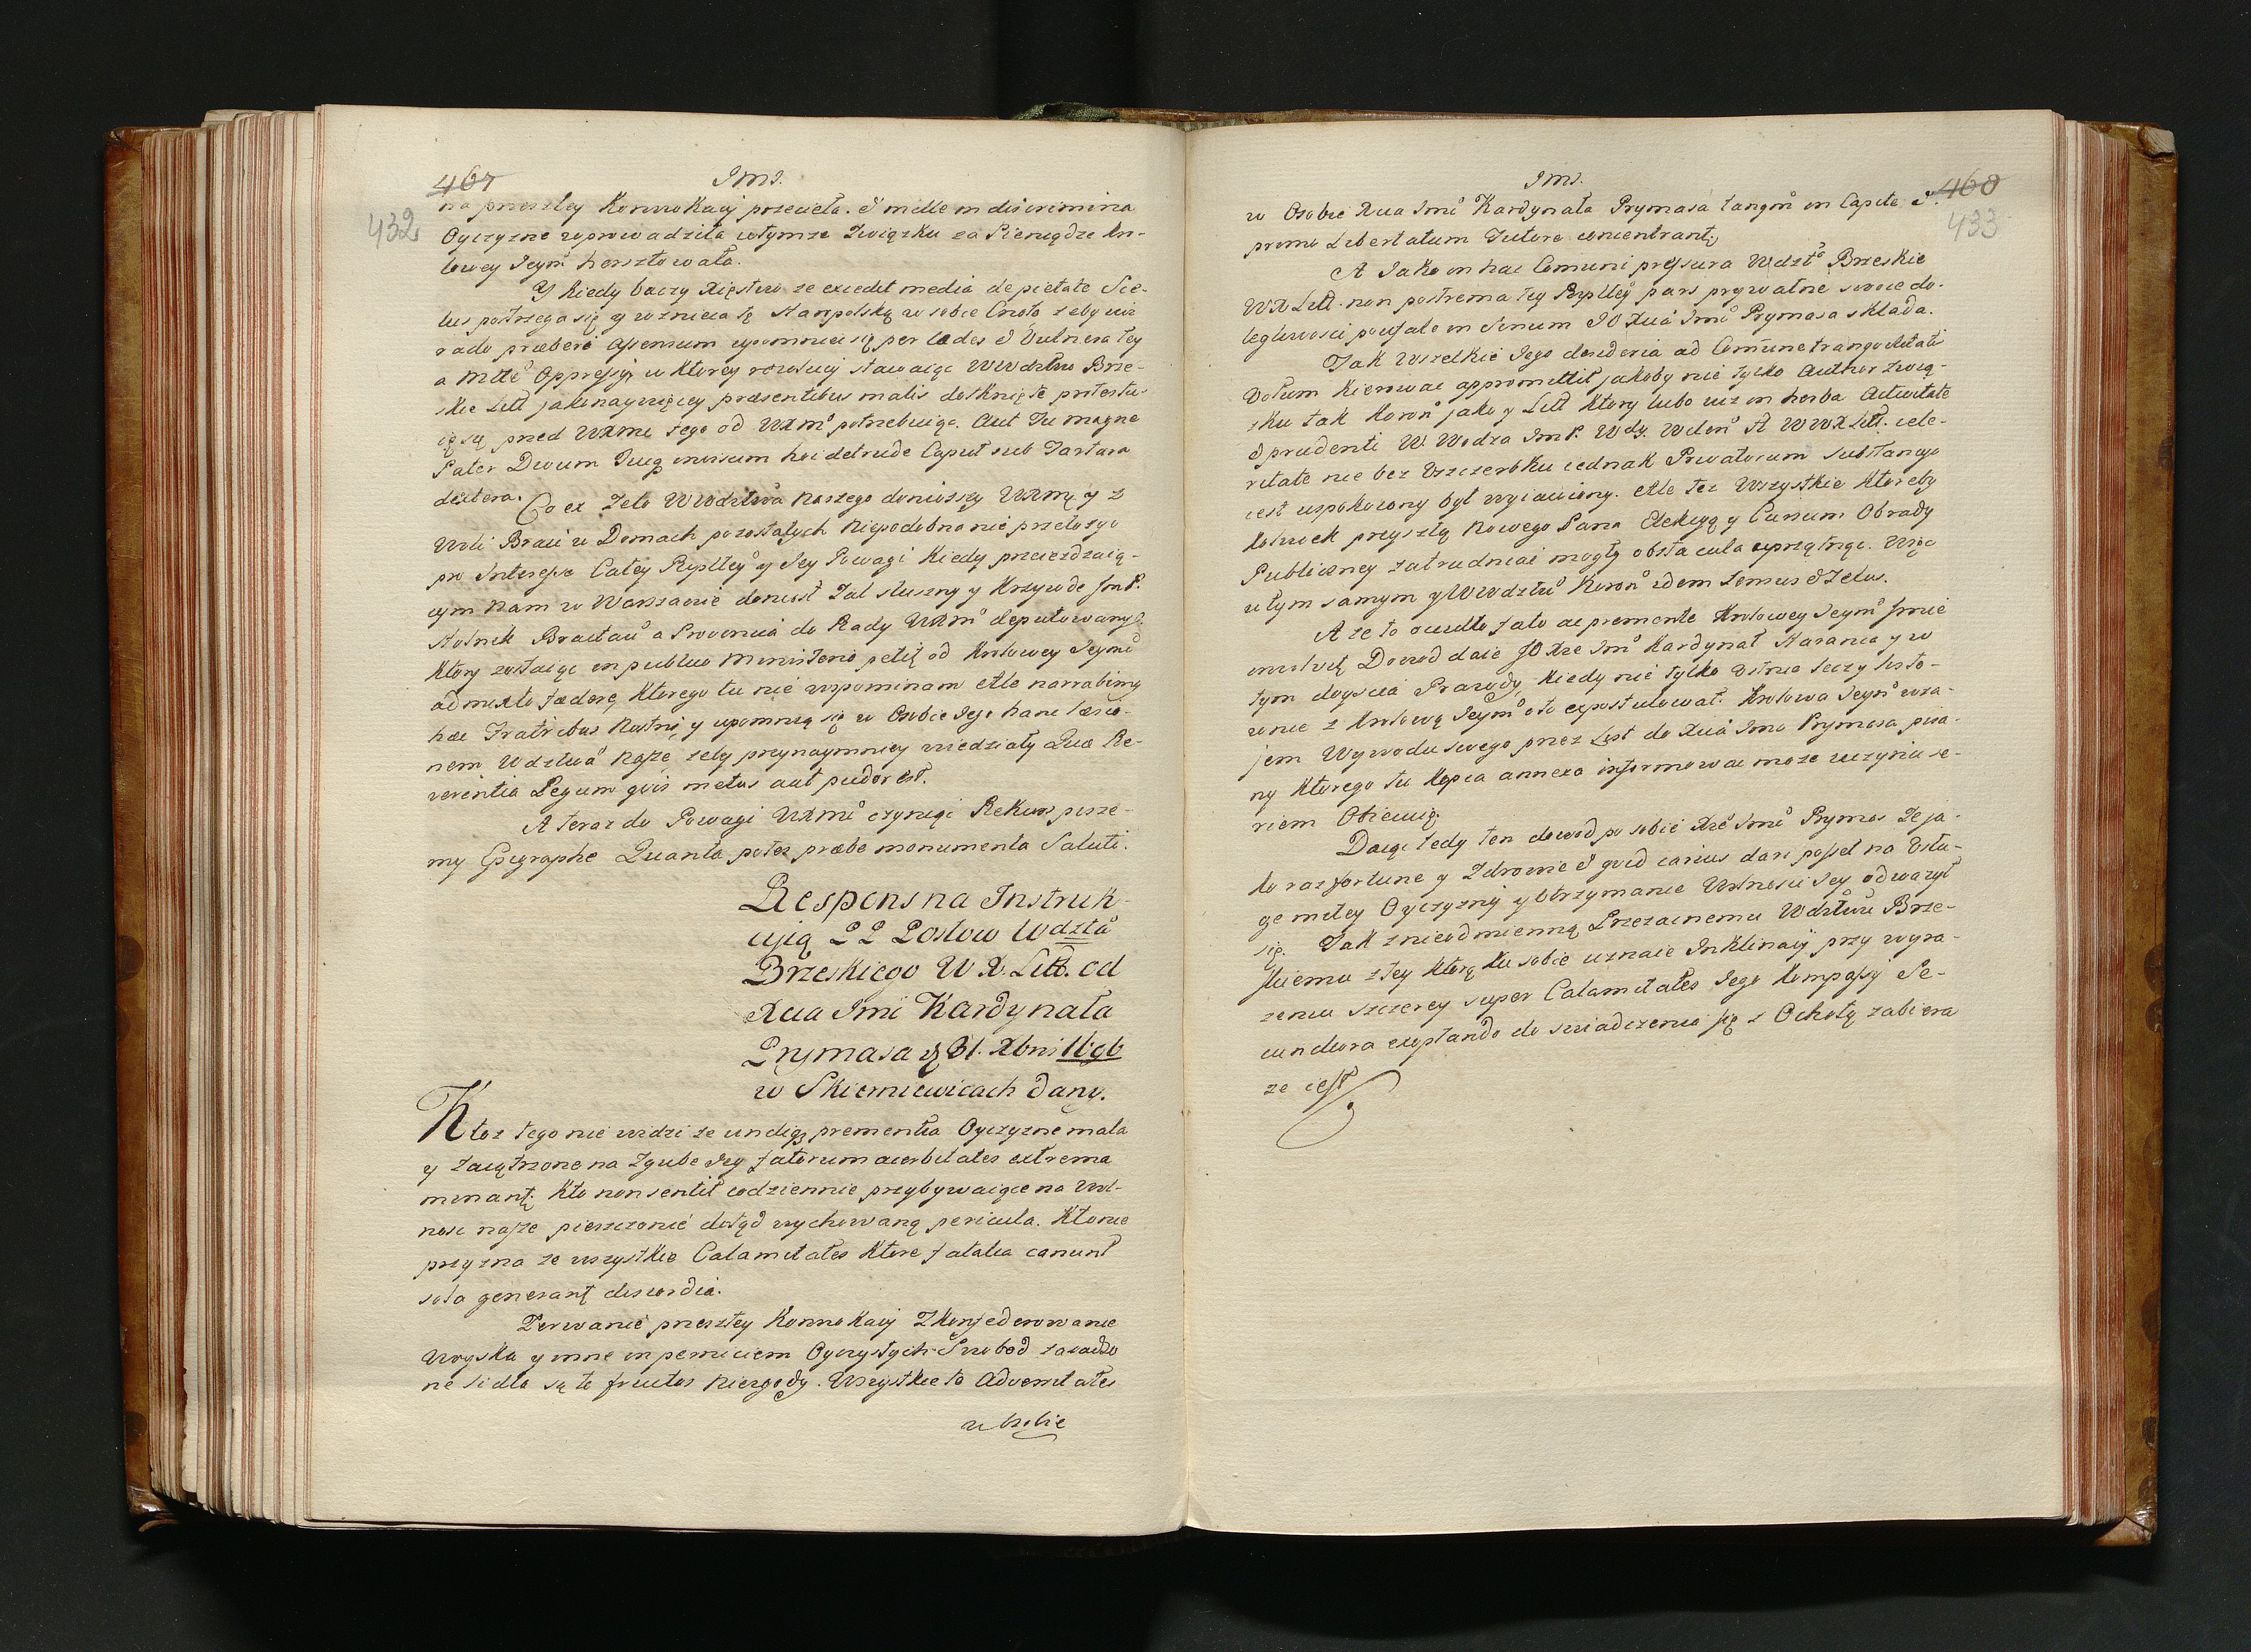 467
Ims.
432
na przeszłey Konwokacij przecieła. & mille in discrimina
Oyczyzne wprowadziła wtymze Związku za Pieniądze kro-
lowey Jeym hersztowała.
Y kiedy baczy Xięstwo ze excedit media de pietate Sce-
lus postrzega się y wznieca tę Staropolską w sobie Cnotę zeby
rado præbere assensum upomnieć się per Cædes & Vulnera tey
a Oppressij w ktorey stawaiąc WWdztwo Brze-
skie Litt jako naywięcey præsentibus malis dotknięte protestu-
ią się przed WXMę tego od WXM potrzebuiąc. Aut Tu magne
Pater Divum hoc detrude Caput sub Tartara
dextera.
Co ex Zelo WWdztwa Naszego doniosszy WXMę y z
Woli Braci w Domach pozostałych Niepodobna nie przełozyc
pro Interesse Całey Rpltey y Jey Powagi kiedy przeiezdzaią-
cym Nam w Warszawie doniosł Zal słuszny y Krzywde Jm P.
Stolnik Bracław a Provincia do Rady WXM deputowany
ktory zostaiąc in publico Ministerio od Krolowey Jeymci
ktorego tu nie wspominam Ale narrabimy
hæc Fratribus Nostris y upomnią się w Osobie Jego hanc læsio-
nem Wdztwa Nasze zeby przynaymniey wiedziały Quæ Re-
verentia Legum qvis metus aut pudor est.
A teraz do Powagi WXMci czyniąc Rekurs pisze-
my Epigraphe Quanta potes præbe monumenta Saluti.
Respons na Instruk-
cyią PP Posłow Wdztà
Brzeskiego W. X. Litt. od
Xcia Jmci Kardynała
Prymasa d 31. Xbris 1696
w Skierniewicach dany.
Ktoz tego nie widzi ze undiq prementia Oyczyzne mala
y zawziętrzone na Zgube Jey fatorum acerbitates extrema
minant. Kto non sentit codziennie przybywaiące na Wol-
nosc nasze pieszczonie dotąd wychowaną pericula. Kto nie
przyzna ze wszystkie Calamitates ktore fatalia canunt
sola generant discordia.
Zerwanie przeszłey Konwokacij Zkonfederowanie
Woyska y inne in perniciem Oyczystych Swobod zawiedzio
ne sidła są to fructus Niezgody. Wszystkie te Adversitates
w Osobie
Ims.
468
433
w Osobie Xcia Jmci Kardynała Prymasa tanqm in Capite &
primo Libertatum Tutore concentrant
A Jako in hac Comuni pressura Wdztò Brzeskie
WXLitt. non postrema tey Rpltey pars prywatne swoie do-
legliwosci poufale in Sinum JO Xcia Jmci Prymasa składa.
Tak wszelkie Jego desideria ad Comune tranquilitatis
Votum kierować appromittit jakoby nie tylko Author związ-
ku tak Koron jako y Litt ktory lubo iuz in herba Activitate
& prudenti W. Wodza Jm P. Wdy. Wilen A WWX Litt. cele-
ritate nie bez Uszczerbku iednak Privatorum Substancyi
iest uspokoiony był wyiawiony. Ale tez Wszystkie ktoreby
kolwiek przyszłą Nowego Pana Elekcyą y Cursum Obrady
Publiczney zatrudniać mogły obstacula uprzątnąć. Więc
w tym samym y WWdztwu Koron idem Sensus & Zelus.
A ze to occulto fato ac premente Krolowey Jeym Jmie
Dowod daie JO Xze Jmc Kardynał Starania y w
tym doyscia Prawdy kiedy nie tylko Ustnie Seczy listo-
wnie z Krolową Jeym oto expostulował. Krolowa Jeym wza-
jem Wywodu swego przez List do Xcia Jmci Prymasa pisa-
ny ktorego tu kopia annexa informować moze uczynia se-
riem Obiecuię.
Daiąc tedy ten dowod po sobie Xze Jmc Prymas Ze ja-
ko raz fortune y Zdrowie & qvid carius dari posset na Usłu-
ge miłey Oyczyzny y otrzymanie Wolnosci Jey odwazył
się. Tak z nieodmienną Przezacnemu Wdztwu Brze-
skiemu z tey ktorą ku sobie uznaie Inklinacij przy wyra-
zeniu szczerey super Calamitates Jego kompassij Se-
cundiora exoptando do swiadczenia się z Ochotą zabiera
ze iest